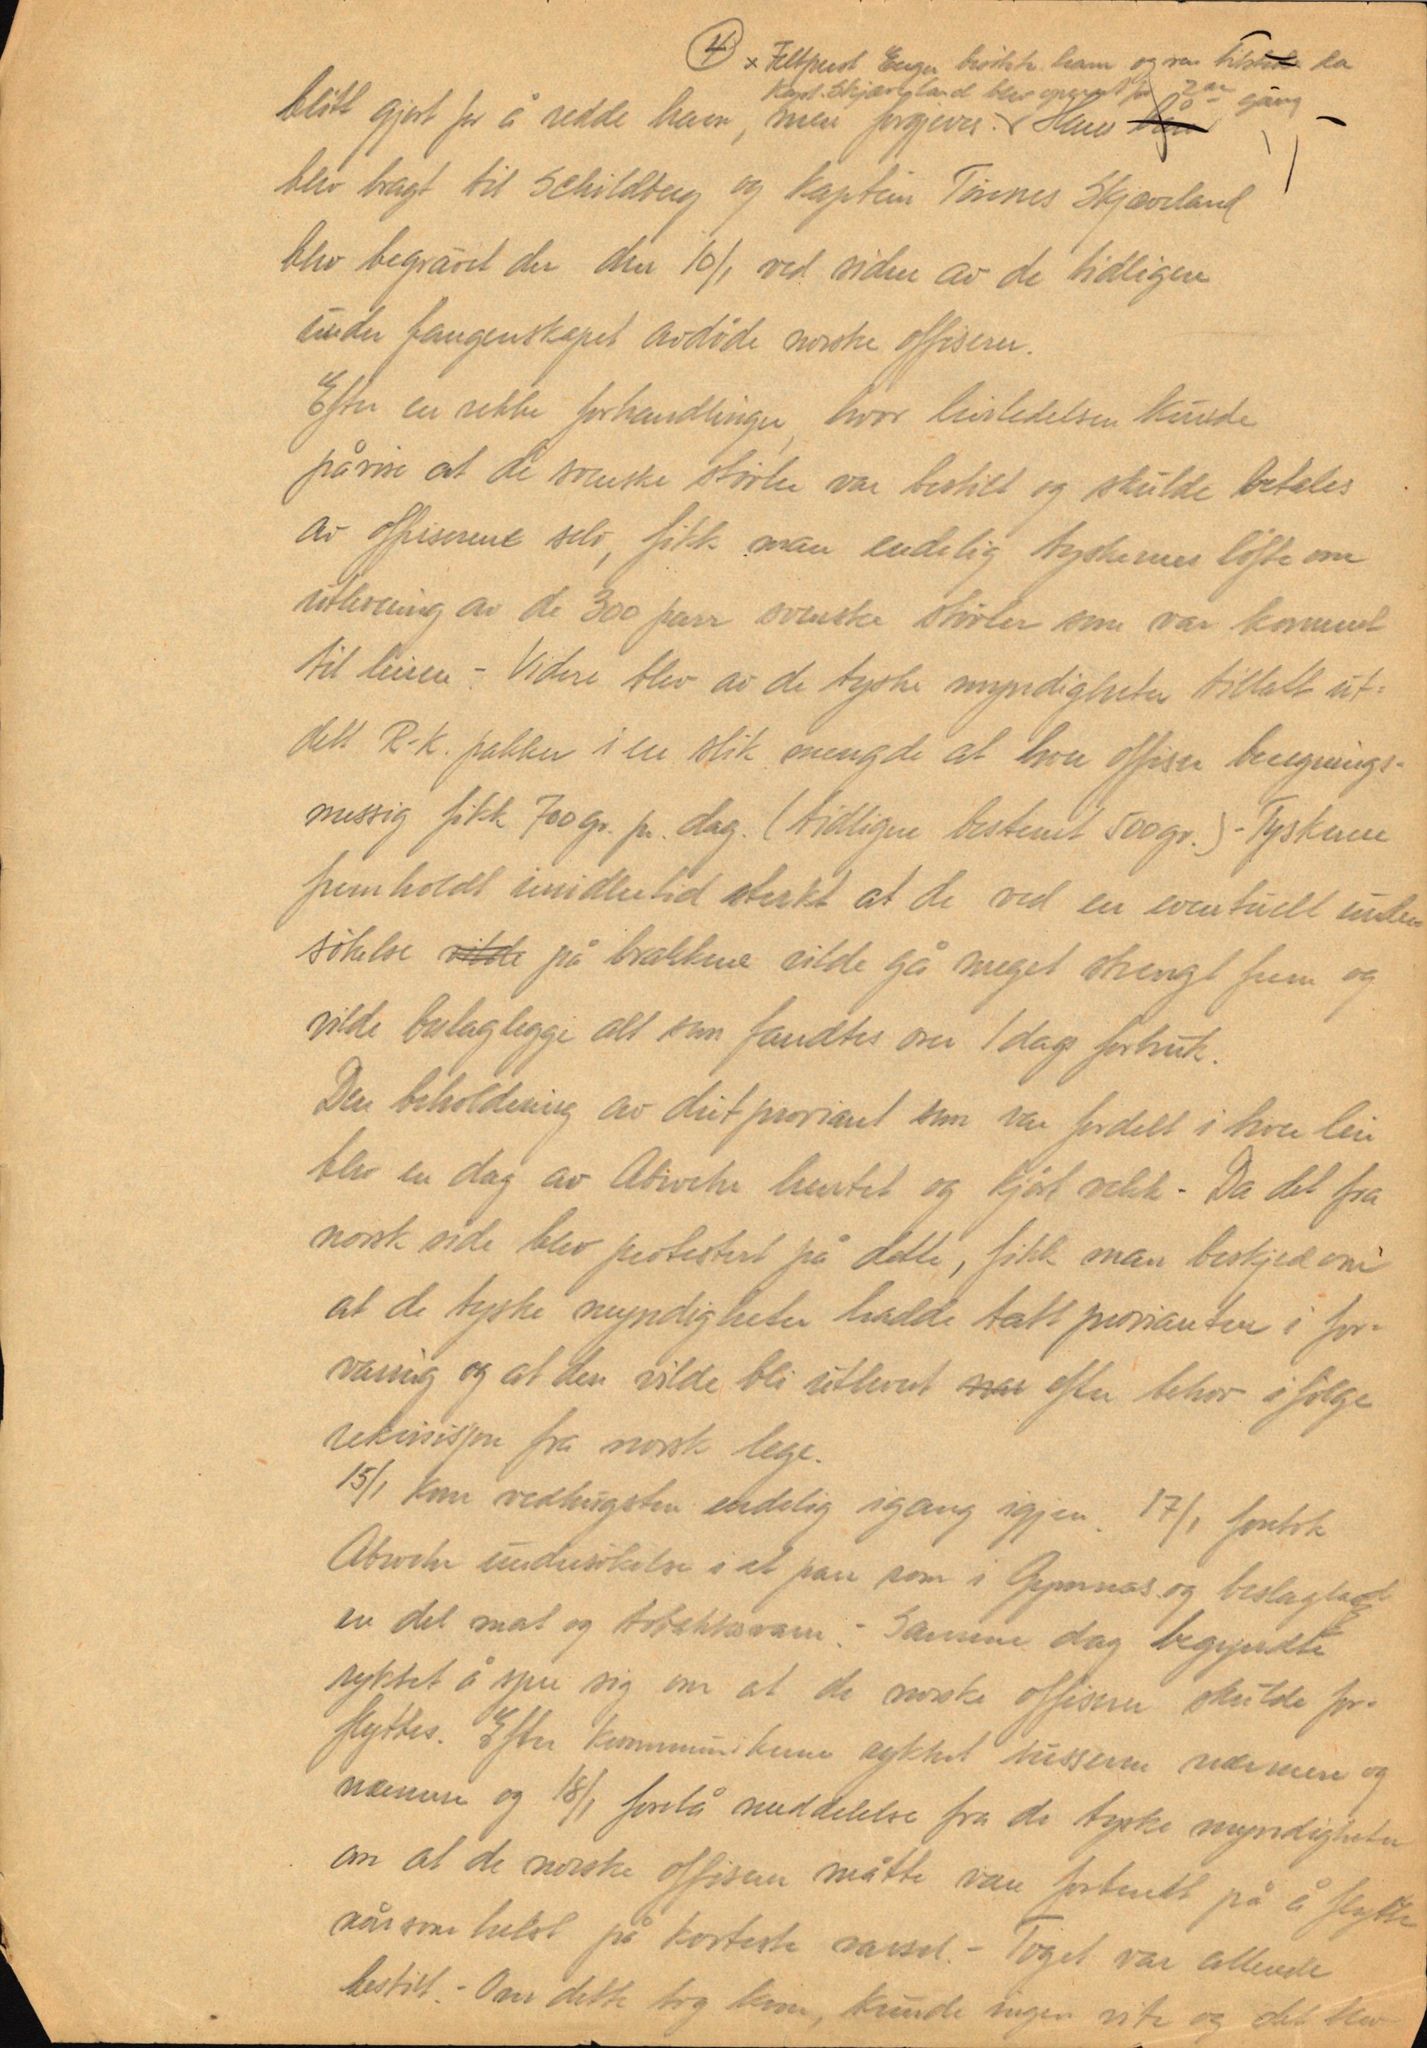 4
× Feltprest Enger besökte ham og var tilstede da
Kapt. Skjæveland blev operert for 2en gang
blitt gjort for å redde ham, men forgjeves. × Hans
blev bragt til Schildberg og Kaptein Tönnes Skjæveland
blev begravet der den 10/1 ved siden av de tidligere
under fangenskapet avdöde norske offiserer.
Efter en rekke forhandlinger, hvor leirledelsen kunde
påvise at de svenske stövler var bestilt og skulde betales
av offiserene selv, fikk man endelig tyskernes löfte om
utlevering av de 300 parr svenske stövler som var kommet
til leiren - Videre blev av de tyske myndigheter tillatt ut-
delt R-K. pakker i en slik mengde at hver offiser beregnings-
messig fikk 700 gr. pr. dag. (tidligere bestemt 500 gr.) - Tyskerne
fremholdt imidlertid sterkt at de ved en eventuell under
sökelse vilde på brakkene vilde gå meget strengt frem og
vilde beslaglegge alt som fandtes over 1 dags forbruk.
Den beholdning av diétproviant som var fordelt i hver leir
blev en dag av Abwehr hentet og kjört vekk - Da det fra
norsk side blev protestert på dette, fikk man beskjed om
at de tyske myndigheter hadde tatt provianten i for-
varing og at den vilde bli utlevert efter behov ifölge
rekvisisjon fra norsk lege.
15/1 kom vedhugsten endelig igang igjen. 17/1 foretok
Abwehr undersökelse i et par rom i Gymnas. og beslagla
en del mat og tobakksvarer. - Samme dag begyndte
ryktet å spre sig om at de norske offiserer skulde for-
flyttes. Efter kommunikeene rykket russerne nærmere og
nærmere og 18/1 forelå meddelelse fra de tyske myndigheter
om at de norske offiserer måtte være forberedt på å flytte
når som helst på korteste varsel. - Toget var allerede
bestilt. - Om dette tog kom, kunde ingen vite og det blev